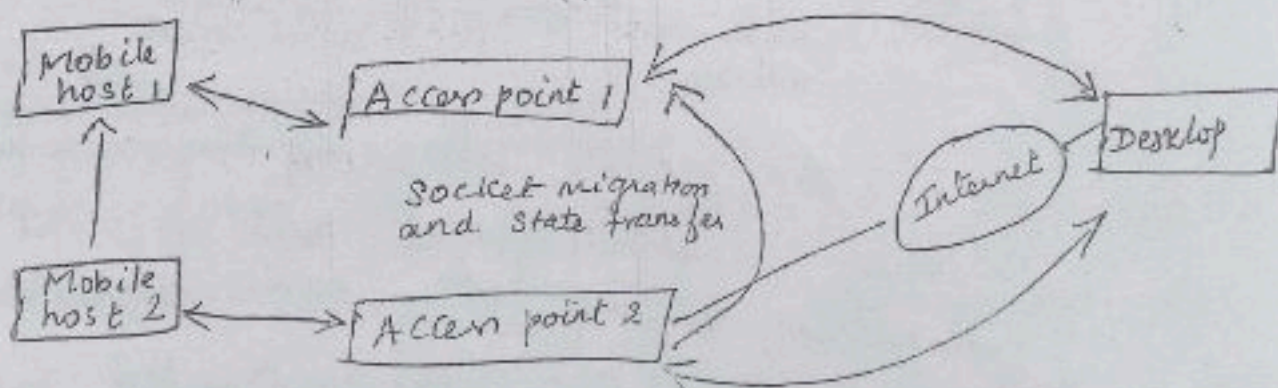 Mobile
host 1
Access point 1
Desktop
Internet
Socket migration
and State transfer
Mobile
host 2
Access point 2